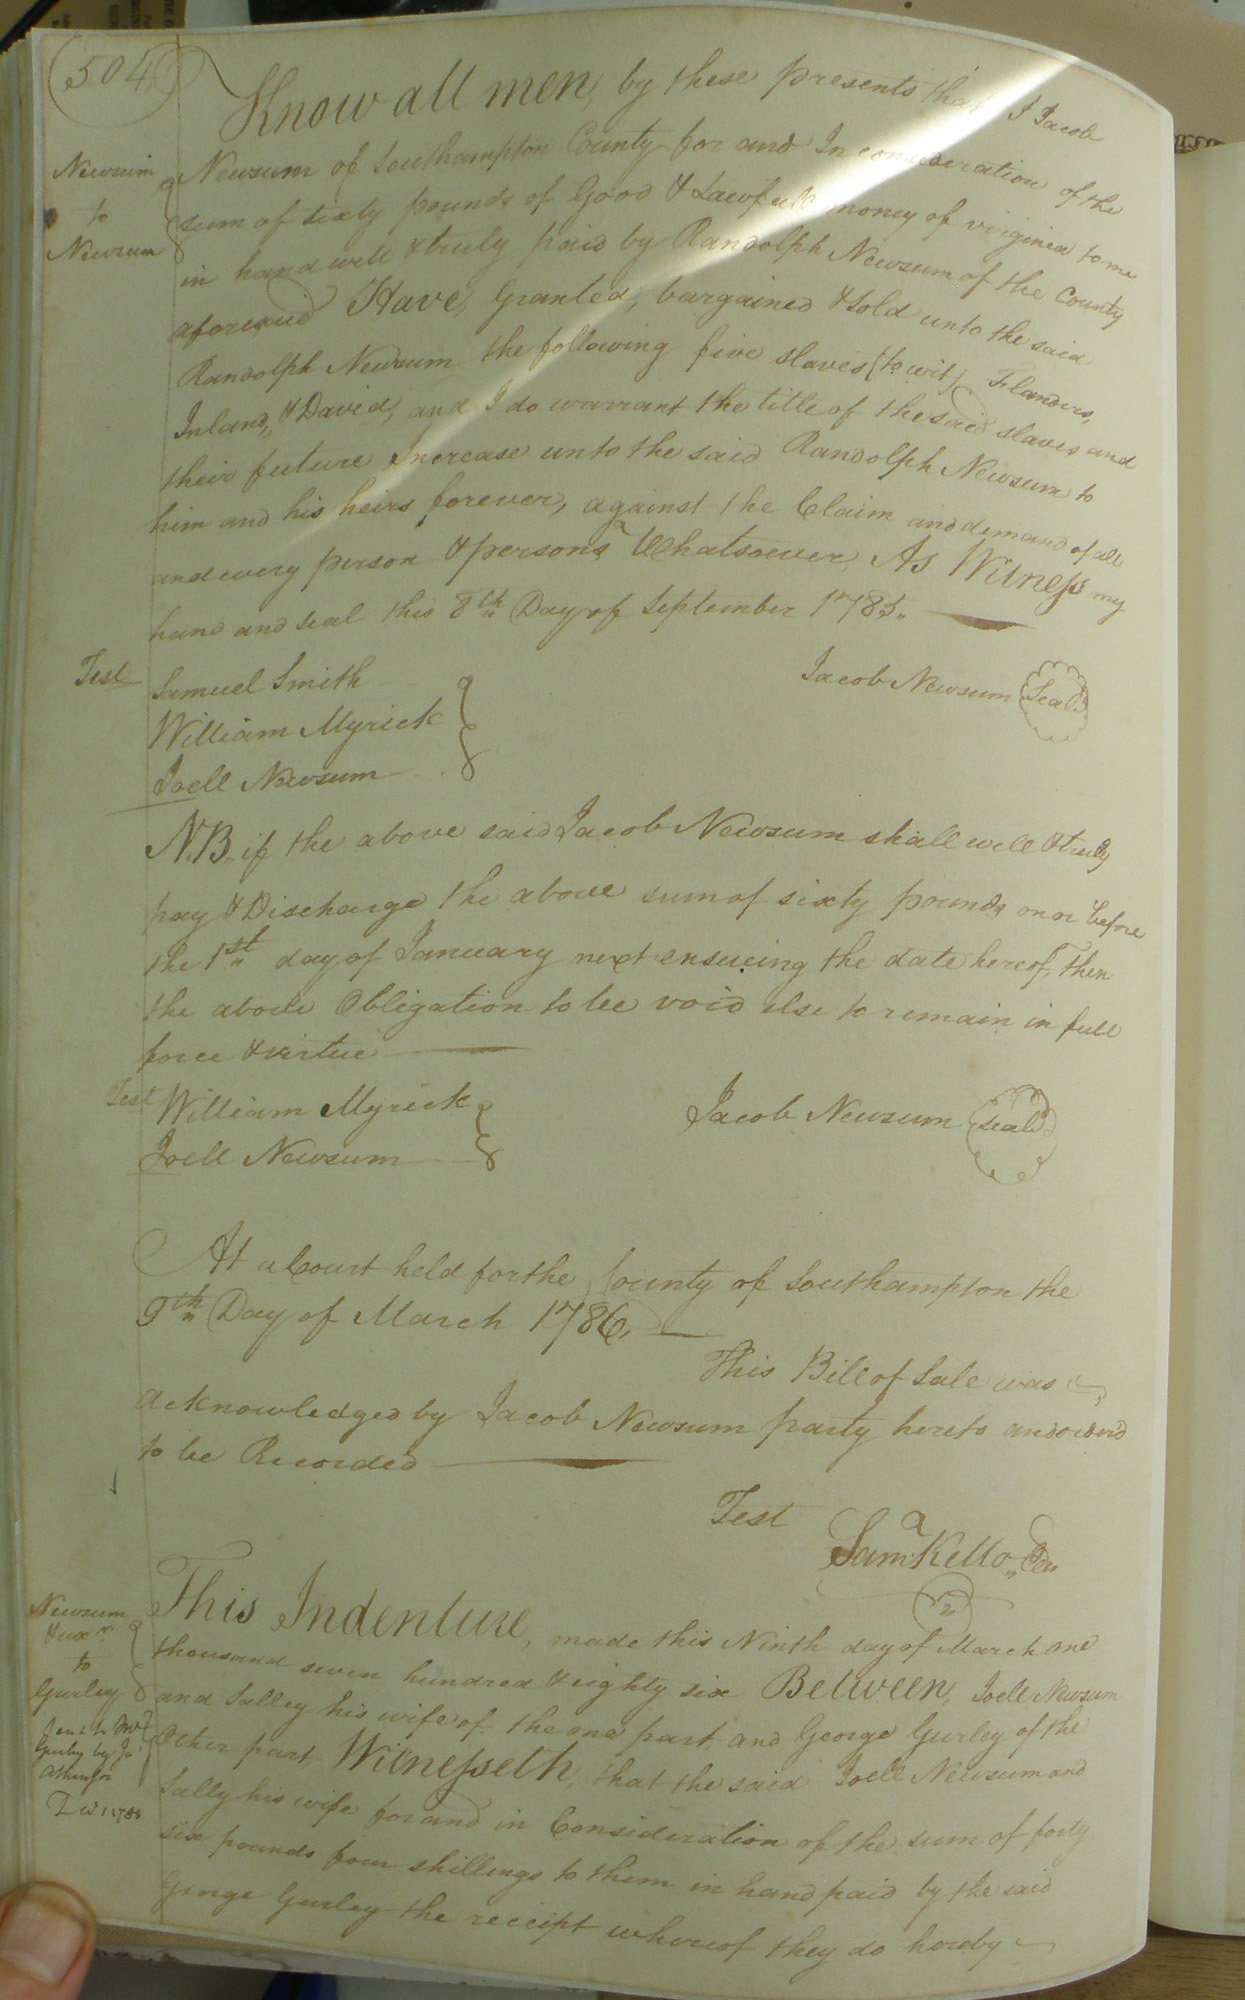 504
Know all men by these presents that I Jacob
Newsum
to
Newsum
Newsum of Southampton County for and In consideration of the
sum of sixty pounds of Good & Lawfull money of virginia to me
in hand well & truly paid by Randolph Newsum of the County
aforesaid Have, Granted, bargained & Sold unto the said
Randolph Newsum the following five slaves (to wit) Flanders,
Inland, & David, and I do warrant the title of the said slaves and
their future Increase unto the said Randolph Newsum to
him and his heirs forever, against the Claim and demand of all
and every person & persons Whatsoever As Witness my
hand and seal this 8th Day of September 1785.
Test
Samuel Smith
William Myrick
Joell Newsum
Jacob Newsum Seal
N.B. if the above said Jacob Newsum shall well & truly
pay & Discharge the above sum of sixty pounds on or before
the 1st day of January next ensueing the date hereof, then
the above Obligation to be void else to remain in full
force & virtue
Test William Myrick
Joell Newsum
Jacob Newsum Seal
At a Court held for the County of Southampton the
9th Day of March 1786,
This Bill of Sale was
acknowledged by Jacob Newsum party hereto and ordered
to be Recorded
Test
Saml Kello
Newsum
& uxr
to
Gurley
This Indenture, made this Ninth day of March one
thousand seven hundred & eighty six Between, Joell Newsum
and Salley his wife of the one part and George Gurley of the
Other part, Witnesseth, that the said Joell Newsum and
Sally his wife for and in Consideration of the sum of forty
six pounds four shillings to them in hand paid by the said
George Gurley the receipt whereof they do hereby